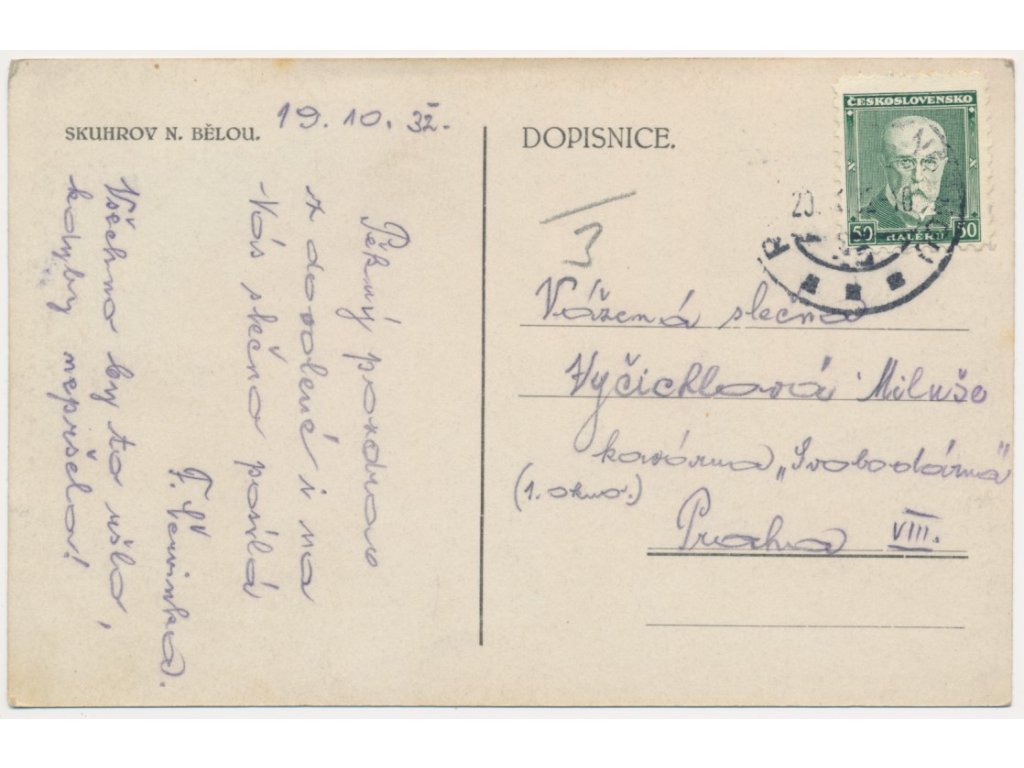 SKUHROV N. BĚLOU.
19. 10. 32.
Pěkný pozdrav
z dovolené i na
Vás slečno posílá
F. Červinka.
Všechno by to ušlo,
kdyby nepršelo!
DOPISNICE.
ČESKOSLOVENSKO
50 HALÉŘŮ 50
20.
3
Vážená slečna
Vyčichlová Miluše
kavárna „Svobodárna"
(1. okno.)
Praha VIII.